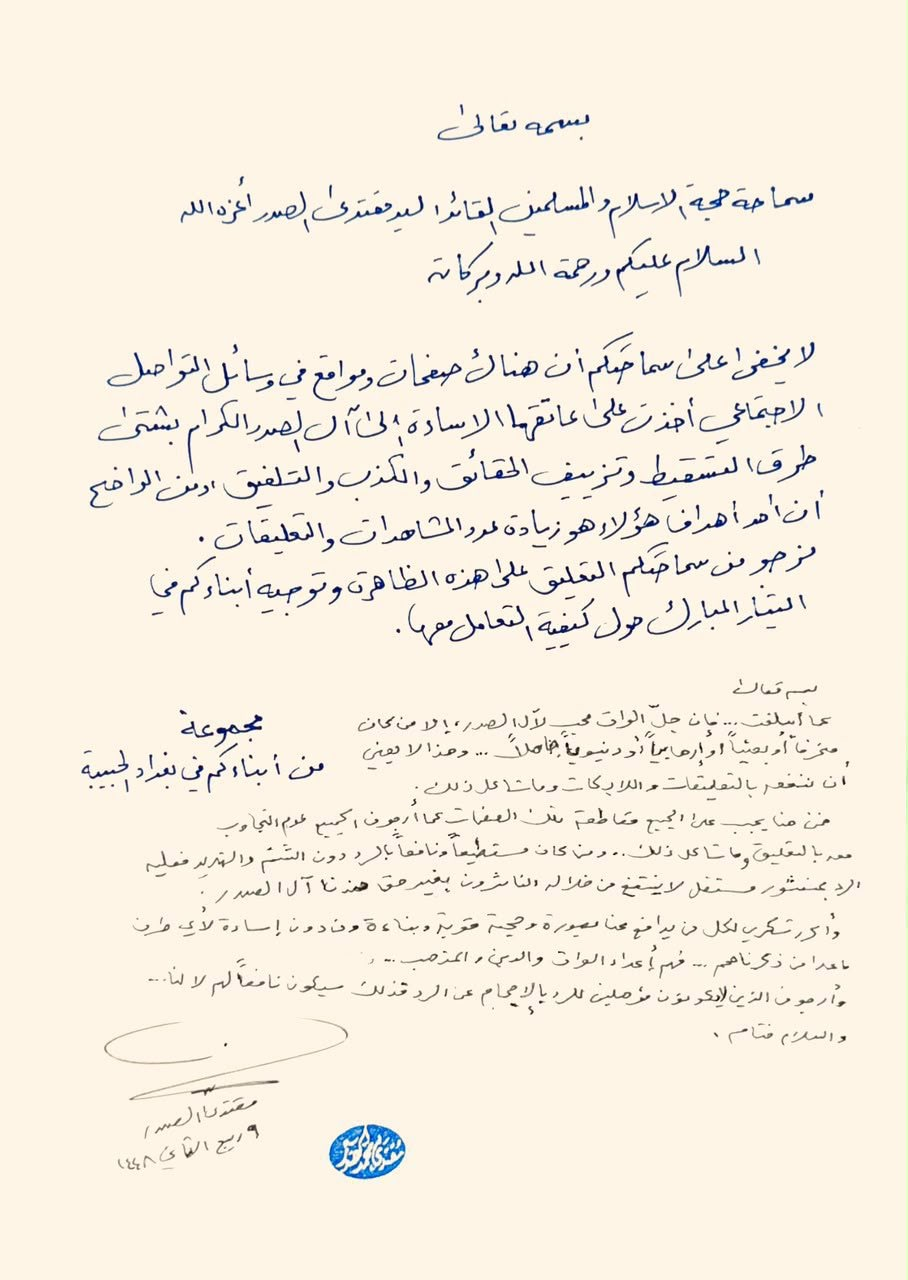 بسمه تعالى
سماحة حجة الاسلام والمسلمين القائد السيد مقتدى الصدر أعزه الله
السلام عليكم ورحمة الله وبركاته
لا يخفى على سماحتكم أن هناك صفحات ومواقع في وسائل التواصل
الاجتماعي أخذت على عاتقها الاساءة إلى آل الصدر الكرام بشتى
طرق التسقيط وتزييف الحقائق والكذب والتلفيق ومن الواضح
أن أحد أهداف هؤلاء هو زيادة عدد المشاهدات والتعليقات .
نرجو من سماحتكم التعليق على هذه الظاهرة وتوجيه أبناءكم في
التيار المبارك حول كيفية التعامل معها .
مجموعة
من أبناءكم في بغداد الحبيبة
بسمه تعالى
كما أسلفت ... فإن جلّ العراق محب لآل الصدر، إلا من كان
منحرفاً أو بعثياً أو إرهابياً أو دنيوياً جاهلاً ... وهذا لا يعني
أن ننفعه بالتعليقات واللايكات وما شاكل ذلك .
فمن هنا يجب على الجميع مقاطعة تلك الصفحات كما أرجو من الجميع عدم التجاوب
معه بالتعليق وما شاكل ذلك .. ومن كان مستطيعاً ونافعاً بالرد دون الشتم والتهديد فعليه
الرد بمنشور مستقل لا ينتفع من خلاله الناشرون بغير حق ضدنا آل الصدر .
وأكرر شكري لكل من يدافع عنا بصورة وحجة قوية وبناءة ومن دون إساءة لأي طرف
ما عدا من ذكرناهم ... فهم أعداء العراق والدين والمذهب ...
وأرجو من الذين لا يكونون مؤهلين للرد بالإحجام عن الرد فذلك سيكون نافعاً لهم لا لنا ...
والسلام ختام .
مقتدى الصدر
٩ ربيع الثاني ١٤٤٨